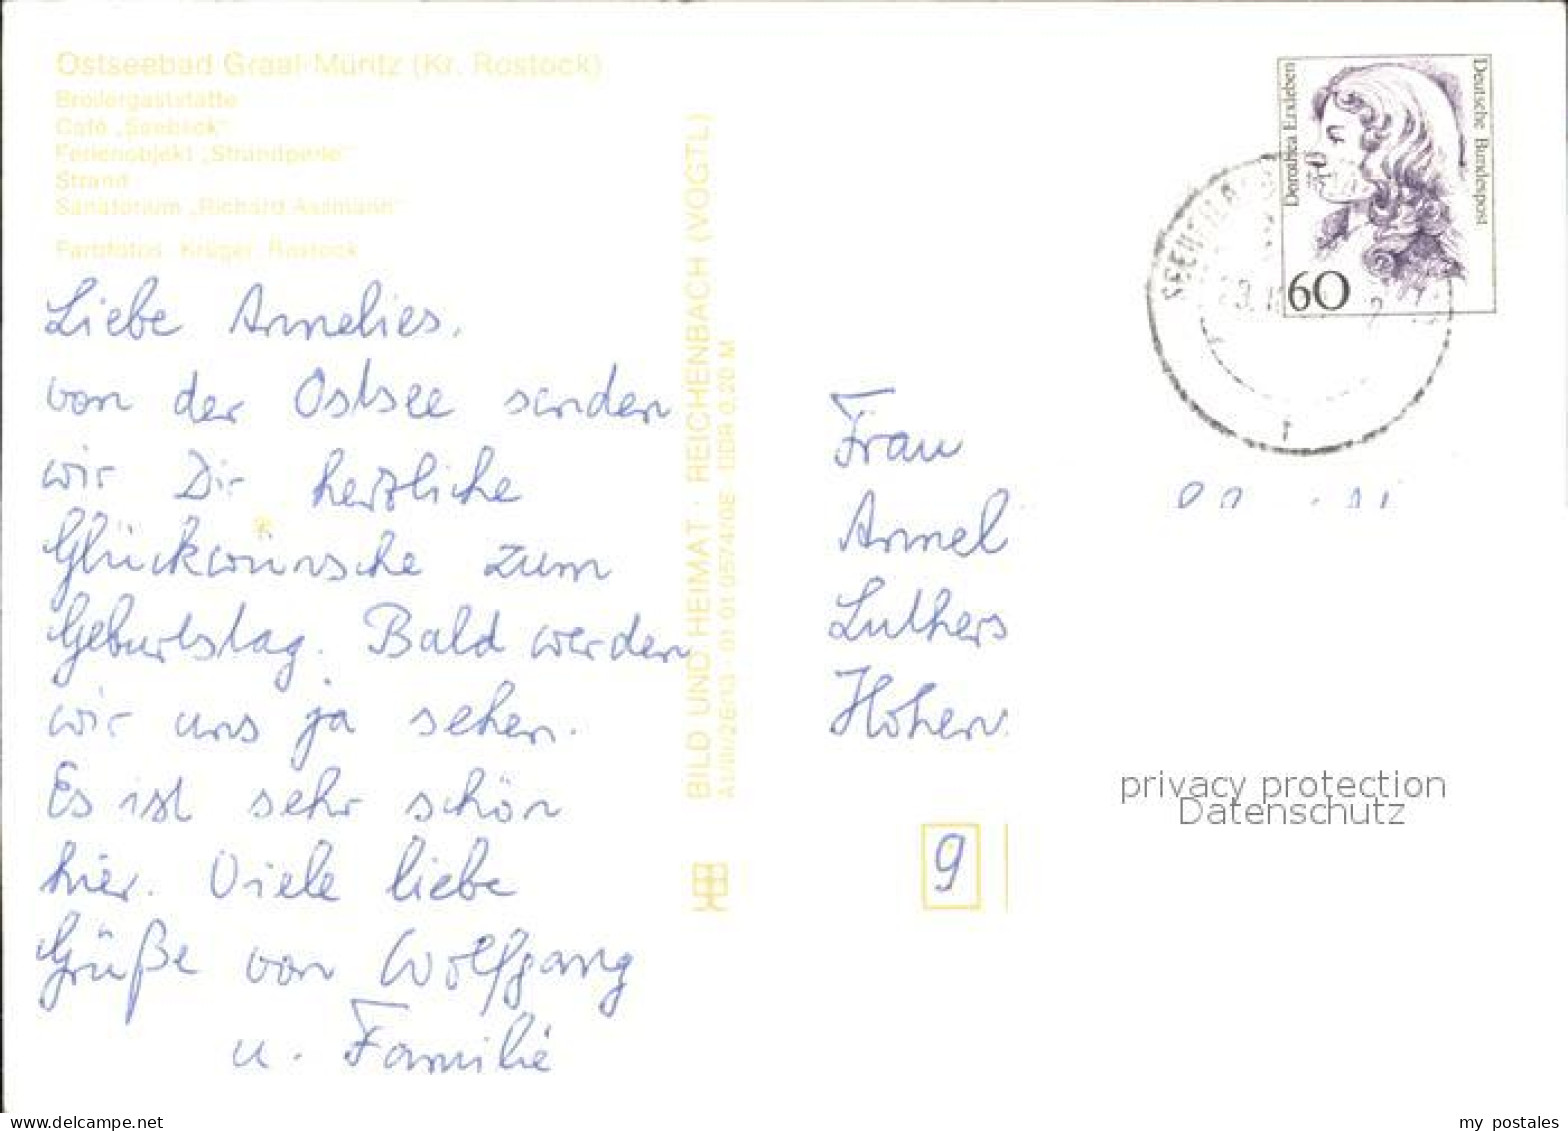 Ostseebad Graal-Müritz (Kr. Rostock)
Broilergaststätte
Café „Seeblick“
Ferienobjekt „Strandperle“
Strand
Sanatorium „Richard Assmann“
Farbfotos: Krüger, Rostock
Liebe Annelies,
von der Ostsee senden
wir Dir herzliche
Glückwünsche zum
Geburtstag. Bald werden
wir uns ja sehen.
Es ist sehr schön
hier. Viele liebe
Grüße von Wolfgang
u. Familie
BILD UND HEIMAT · REICHENBACH (VOGTL)
A1/III/26/13 · 01 01 0574/08 · DDR 0,20 M
Dorothea Erxleben
Deutsche Bundespost
60
Frau
Annel
Luthers
Hohen
9
privacy protection
Datenschutz
my postales